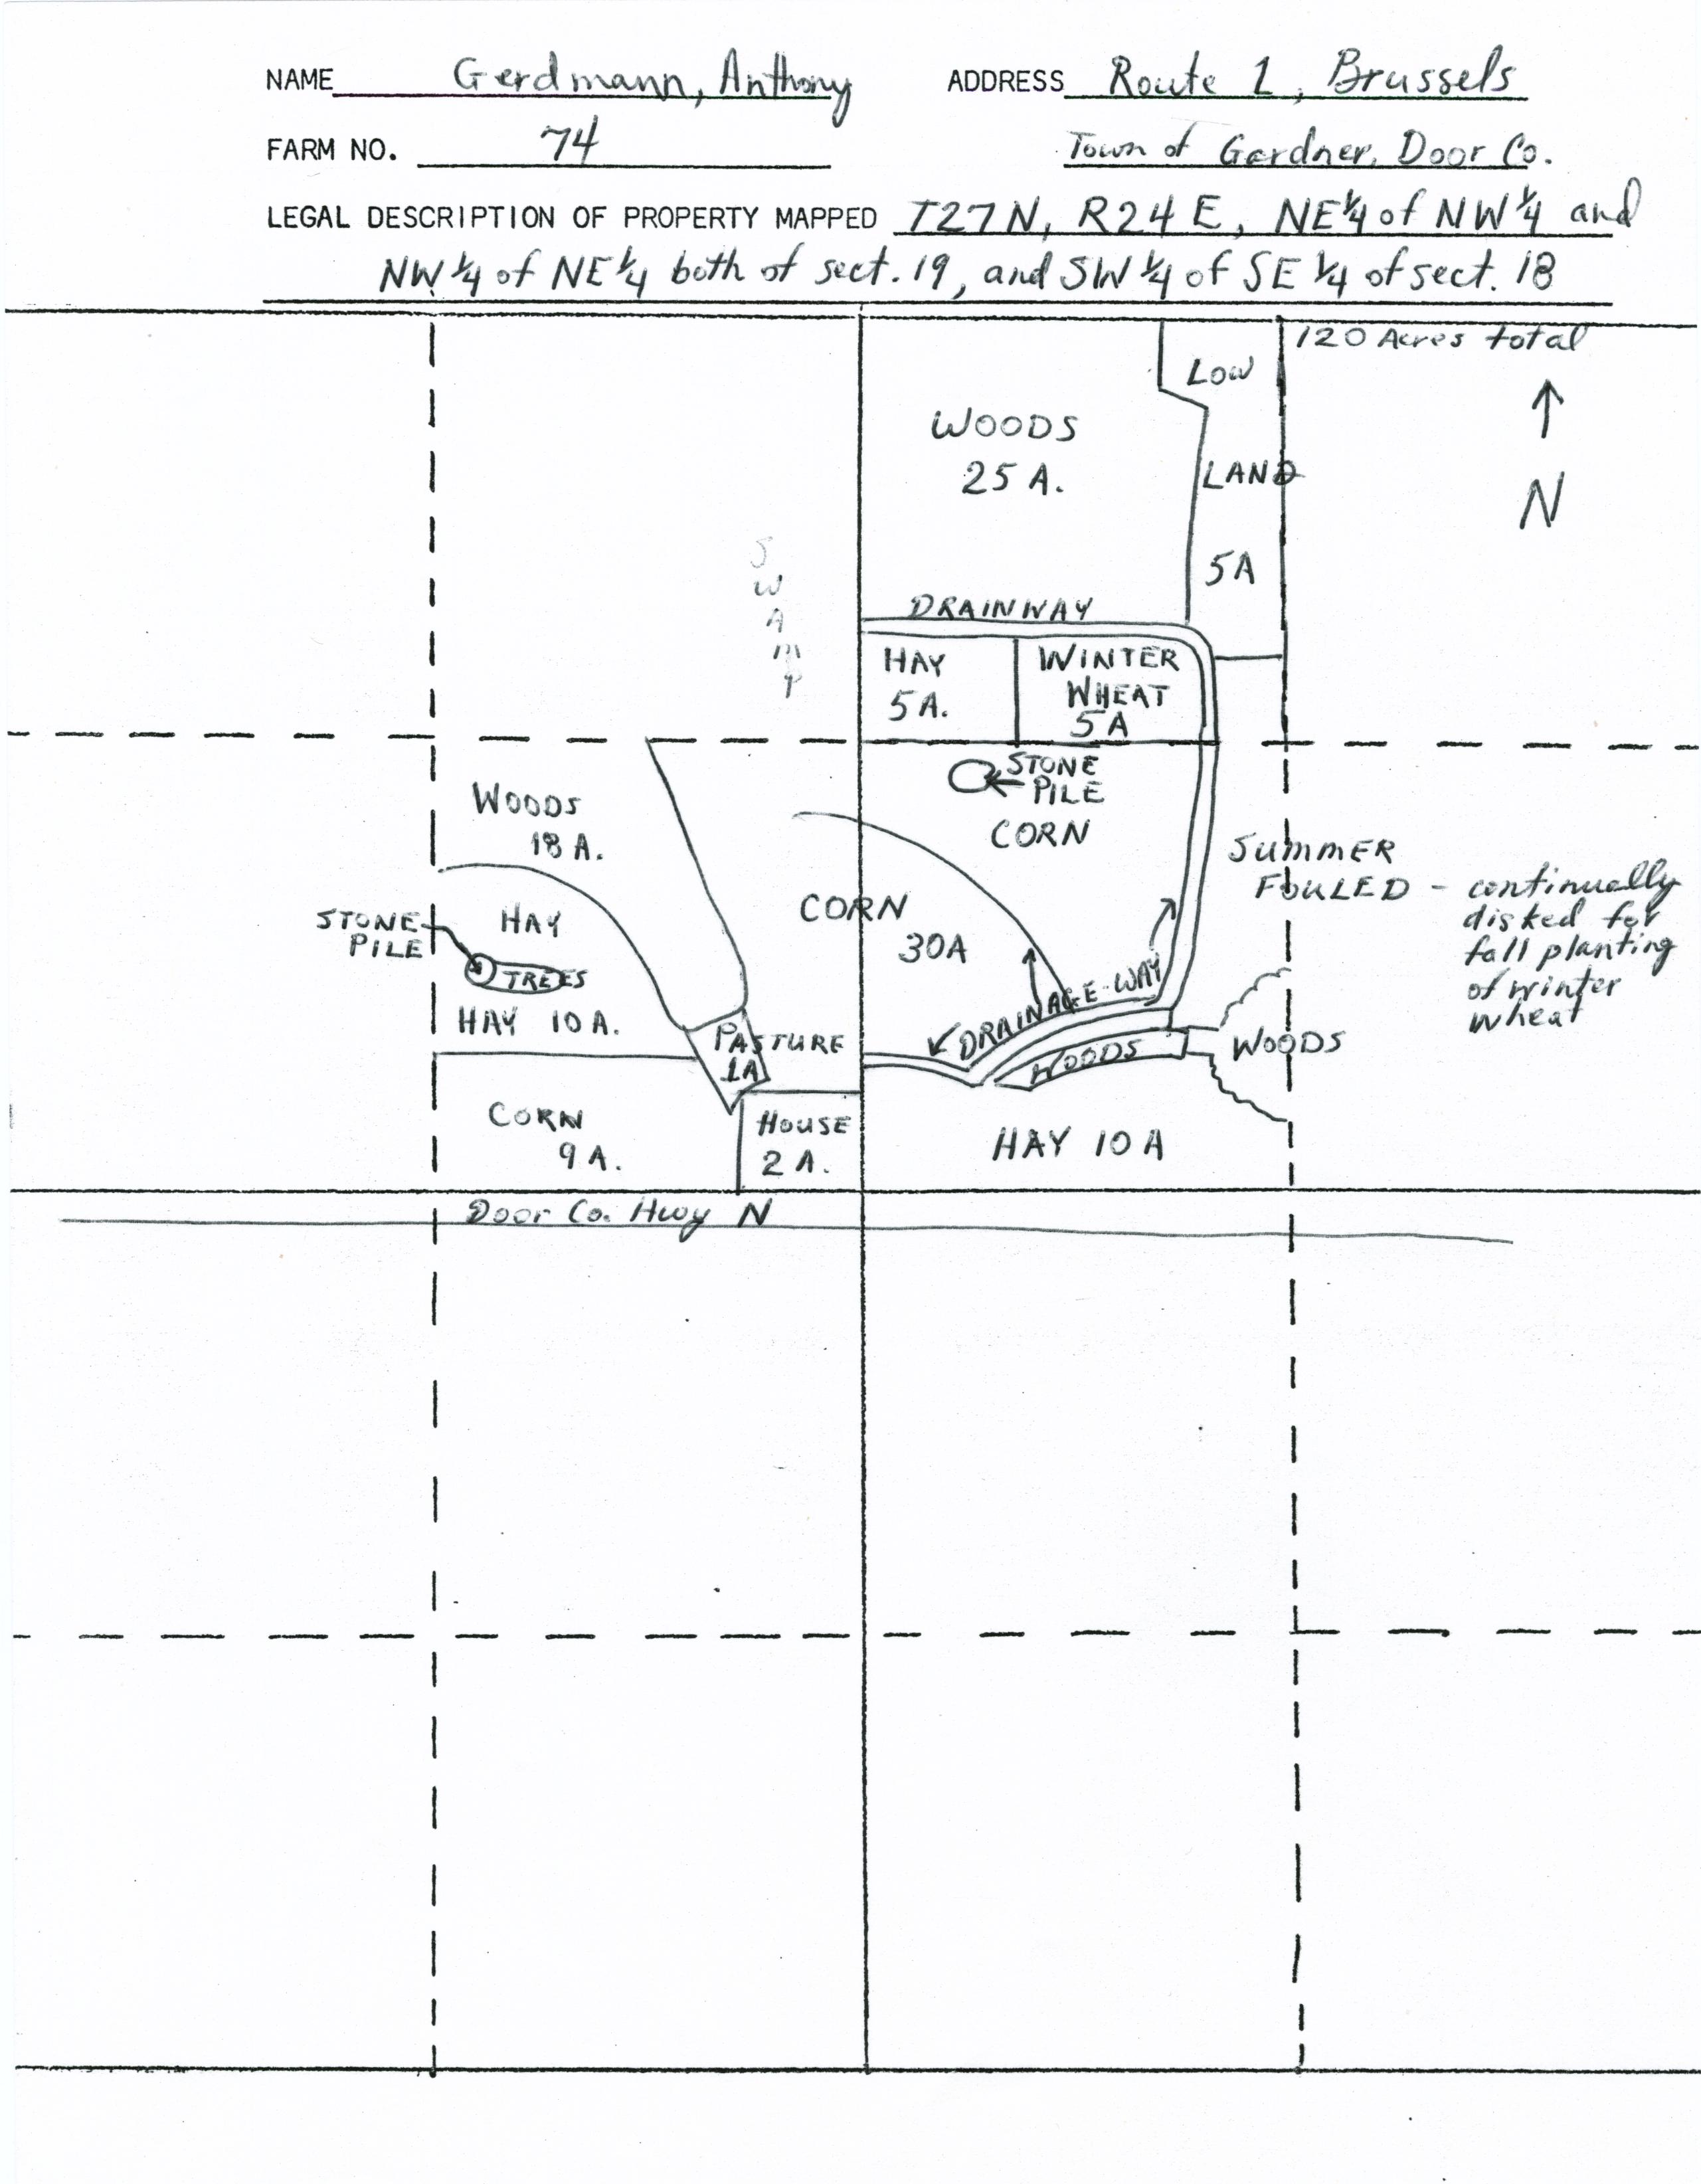 NAME Gerdmann, Anthony ADDRESS Route 1, Brussels
FARM NO. 74 Town of Gardner, Door Co.
LEGAL DESCRIPTION OF PROPERTY MAPPED T27N, R24E, NE¼ of NW¼ and
NW¼ of NE¼ both of sect. 19, and SW¼ of SE¼ of sect. 18
120 Acres total
N
LOW
LAND
5A
WOODS
25 A.
SWAMP
DRAINWAY
HAY
5A.
WINTER
WHEAT
5A
STONE
PILE
CORN
WOODS
18 A.
CORN
30A
SUMMER
FOULED - continually
disked for
fall planting
of winter
wheat
STONE
PILE
HAY
TREES
HAY 10A.
PASTURE
1A
DRAINAGE-WAY
WOODS
WOODS
CORN
9A.
HOUSE
2 A.
HAY 10 A
Door Co. Hwy N